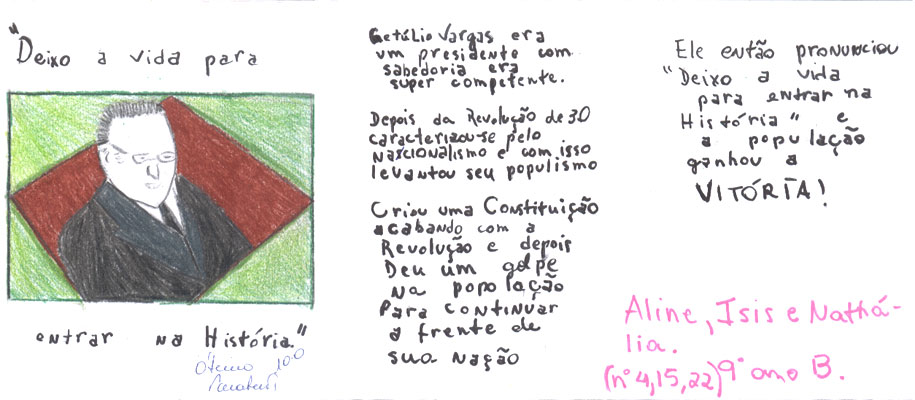 "Deixo a vida para
entrar na História."
Ótimo 10.0
Getúlio Vargas era
um presidente com
sabedoria era
super competente.
Depois da Revolução de 30
caracterizou-se pelo
nascionalismo e com isso
levantou seu populismo
Criou uma Constituição
acabando com a
Revolução e depois
Deu um golpe
na população
Para continuar
a frente de
sua nação
Ele então pronunciou
"Deixo a vida
para entrar na
História" e
a população
ganhou a
VITÓRIA!
Aline, Isis e Nathá-
lia.
(nº 4,15,22) 9º ano B.